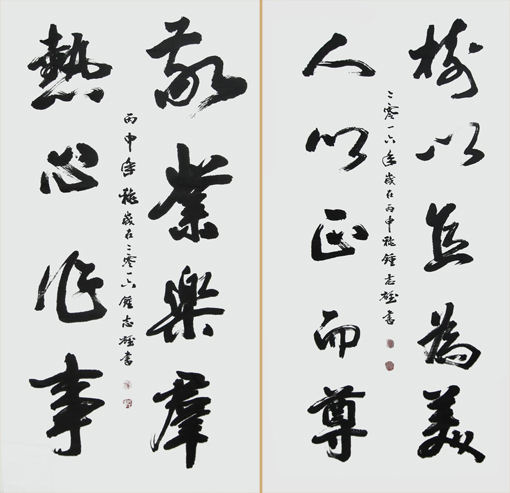 樹以直為美
人以正而尊
二零一六年歲在丙申秋鍾志雄書
敬業樂羣
熱心作事
丙申年秋歲在二零一六鍾志雄書